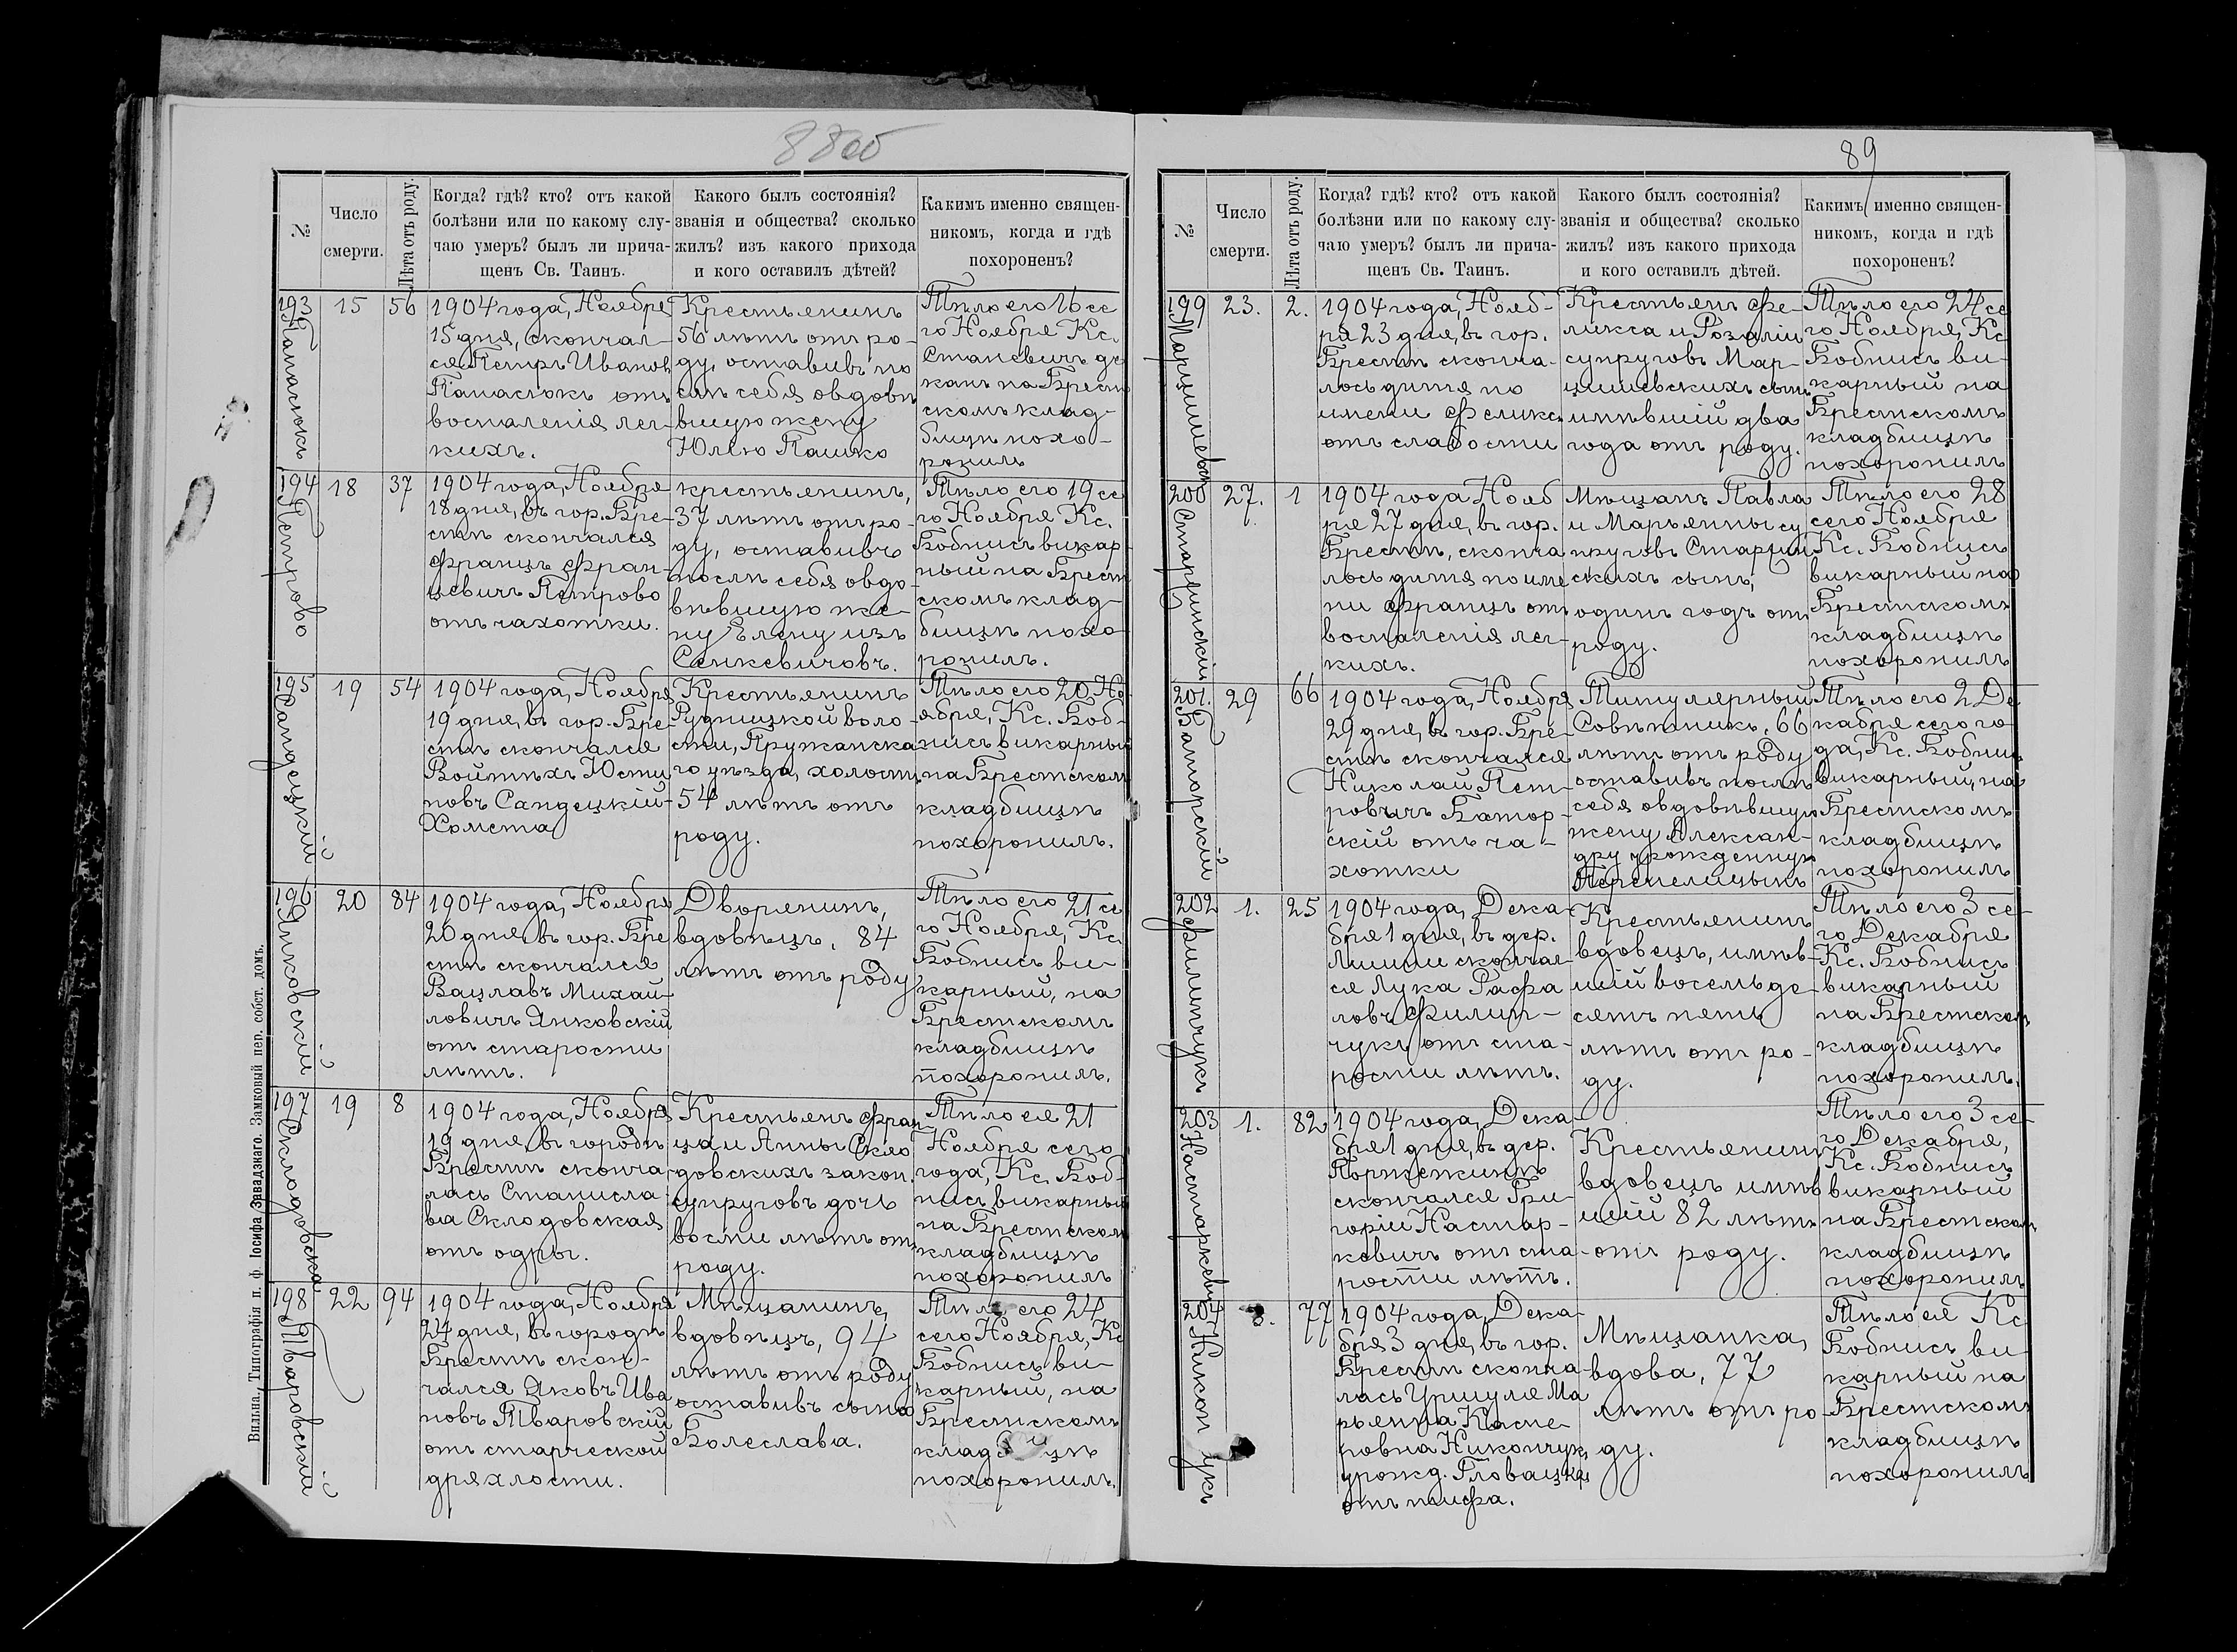 88об
№
Число
смерти.
Лѣта отъ роду.
Когда? гдѣ? кто? отъ какой
болѣзни или по какому слу-
чаю умеръ? былъ ли прича-
щенъ Св. Таинъ.
Какого былъ состоянія?
званія и общества? сколько
жилъ? изъ какого прихода
и кого оставилъ дѣтей?
Какимъ именно священ-
никомъ, когда и гдѣ
похороненъ?
193
Панасюкъ
15
56
1904 года, Ноября
15 дня, скончал-
ся Петръ Ивановъ
Панасюкъ отъ
воспаленія лег-
кихъ.
Крестьянинъ
56 лѣтъ отъ ро-
ду, оставивъ по
слѣ себя овдовѣ
вшую жену
Юлію Пашко
Тѣло его 16 се
го Ноября Кс.
Станевичъ де
канъ на Брест
скомъ клад-
бищѣ похо-
ронилъ
194
Петрово
18
37
1904 года, Ноября
18 дня, въ гор. Бре-
стѣ скончался
Францъ Фран-
цевичъ Петрово
отъ чахотки.
крестьянинъ,
37 лѣтъ отъ ро-
ду, оставивъ
послѣ себя овдо-
вѣвшую же-
ну Елену изъ
Сенкевичовъ.
Тѣло его 19 се
го Ноября Кс.
Бобнисъ викар-
ный на Брест
скомъ клад-
бищѣ похо-
ронилъ.
195
Сандецкій
19
54
1904 года, Ноября
19 дня, въ гор. Бре-
стѣ скончался
Войтѣхъ Юсти
новъ Сандецкій-
Хомста
Крестьянинъ
Рудницкой воло-
сти, Пружанска
го уѣзда, холостъ,
54 лѣтъ отъ
роду.
Тѣло его 20 Но-
ября, Кс. Боб-
нисъ викарный
на Брестскомъ
кладбищѣ
похоронилъ.
196
Янковскій
20
84
1904 года, Ноября
20 дня, въ гор. Бре
стѣ скончался
Вацлавъ Михай-
ловичъ Янковскій
отъ старости
лѣтъ.
Дворянинъ,
вдовецъ, 84
лѣтъ отъ роду
Тѣло его 21 се
го Ноября, Кс.
Бобнисъ ви-
карный, на
Брестскомъ
кладбищѣ
похоронилъ.
197
Склодовская
19
8
1904 года, Ноября
19 дня, въ городѣ
Брестѣ сконча-
лась Станисла-
ва Склодовская
отъ одры.
Крестьянъ Фран
ца и Анны Скло
довскихъ закон.
супруговъ дочь
восми лѣтъ отъ
роду.
Тѣло ея 21
Ноября сего
года, Кс. Боб-
нисъ викарный
на Брестскомъ
кладбищѣ
похоронилъ
198
Тваровскій
22
94
1904 года, Ноября
24 дня, въ городѣ
Брестѣ скон-
чался Яковъ Ива
новъ Тваровскій
отъ старческой
дряхлости.
Мѣщанинъ,
вдовецъ, 94
лѣтъ отъ роду
оставивъ сына
Болеслава.
Тѣло его 24
сего Ноября, Кс
Бобнисъ ви-
карный, на
Брестскомъ
кладбищѣ
похоронилъ.
Вильна, Типографія п. ф. Іосифа Завадзкаго. Замковый пер. собст. домъ.
89
№
Число
смерти.
Лѣта отъ роду.
Когда? гдѣ? кто? отъ какой
болѣзни или по какому слу-
чаю умеръ? былъ ли прича-
щенъ Св. Таинъ.
Какого былъ состоянія?
званія и общества? сколько
жилъ? изъ какого прихода
и кого оставилъ дѣтей.
Какимъ именно священ-
никомъ, когда и гдѣ
похороненъ?
199
23.
2.
1904 года, Нояб-
ря 23 дня, въ гор.
Брестѣ сконча-
лось дитя по
имени Феликсъ
отъ слабости
Крестьянъ Фе-
ликса и Розаліи
супруговъ Мар-
цишевскихъ сынъ
имѣвшій два
года отъ роду.
Тѣло его 24 се
го Ноября, Кс
Бобнисъ ви-
карный на
Брестскомъ
кладбищѣ
похоронилъ
200
Старжинскій
27.
1
1904 года Нояб
ря 27 дня, въ гор.
Брестѣ, сконча
лось дитя по име
ни Францъ отъ
воспаленія лег-
кихъ.
Мѣщанъ Павла
и Марьянны су
пруговъ Старжин
скихъ сынъ,
одинъ годъ отъ
роду.
Тѣло его 28
сего Ноября
Кс. Бобнисъ
викарный на
Брестскомъ
кладбищѣ
похоронилъ
201.
Баторскій
29
66
1904 года, Ноября
29 дня, въ гор. Бре-
стѣ скончался
Николай Пет-
ровичъ Батор-
скій отъ ча-
хотки
Титулярный
Совѣтникъ, 66
лѣтъ отъ роду
оставивъ послѣ
себя овдовѣвшую
жену Алексан-
дру урожденную
Перепелицынъ
Тѣло его 2 Де
кабря сего го-
да, Кс. Бобнисъ
викарный, на
Брестскомъ
кладбищѣ
похоронилъ
202
Филипчукъ
1.
25
1904 года, Дека-
бря 1 дня, въ дер.
скончал-
ся Лука Рафа
ловъ Филип-
чукъ отъ ста-
рости лѣтъ.
Крестьянинъ
вдовецъ, имѣв-
шій восемьде-
сятъ пять
лѣтъ отъ ро-
ду.
Тѣло его 3 се-
го Декабря
Кс. Бобнисъ
викарный
на Брестском
кладбищѣ
похоронилъ.
203
1.
82
1904 года, Дека-
бря 1 дня, въ дер.
скончался Гри-
горій Настар-
кевичъ отъ ста-
рости лѣтъ.
Крестьянинъ
вдовецъ имѣв
шій 82 лѣтъ
отъ роду.
Тѣло его 3 се-
го Декабря,
Кс. Бобнисъ
викарный
на Брестском
кладбищѣ
похоронилъ
204
3.
77
1904 года, Дека-
бря 3 дня, въ гор.
Брестѣ сконча-
лась Уршуля Ма
рьянна Каспе-
ровна Никончук,
урожд. Гловацкая
отъ тифа.
Мѣщанка,
вдова, 77
лѣтъ отъ ро-
ду.
Тѣло ея Кс
Бобнисъ ви-
карный на
Брестскомъ
кладбищѣ
похоронилъ